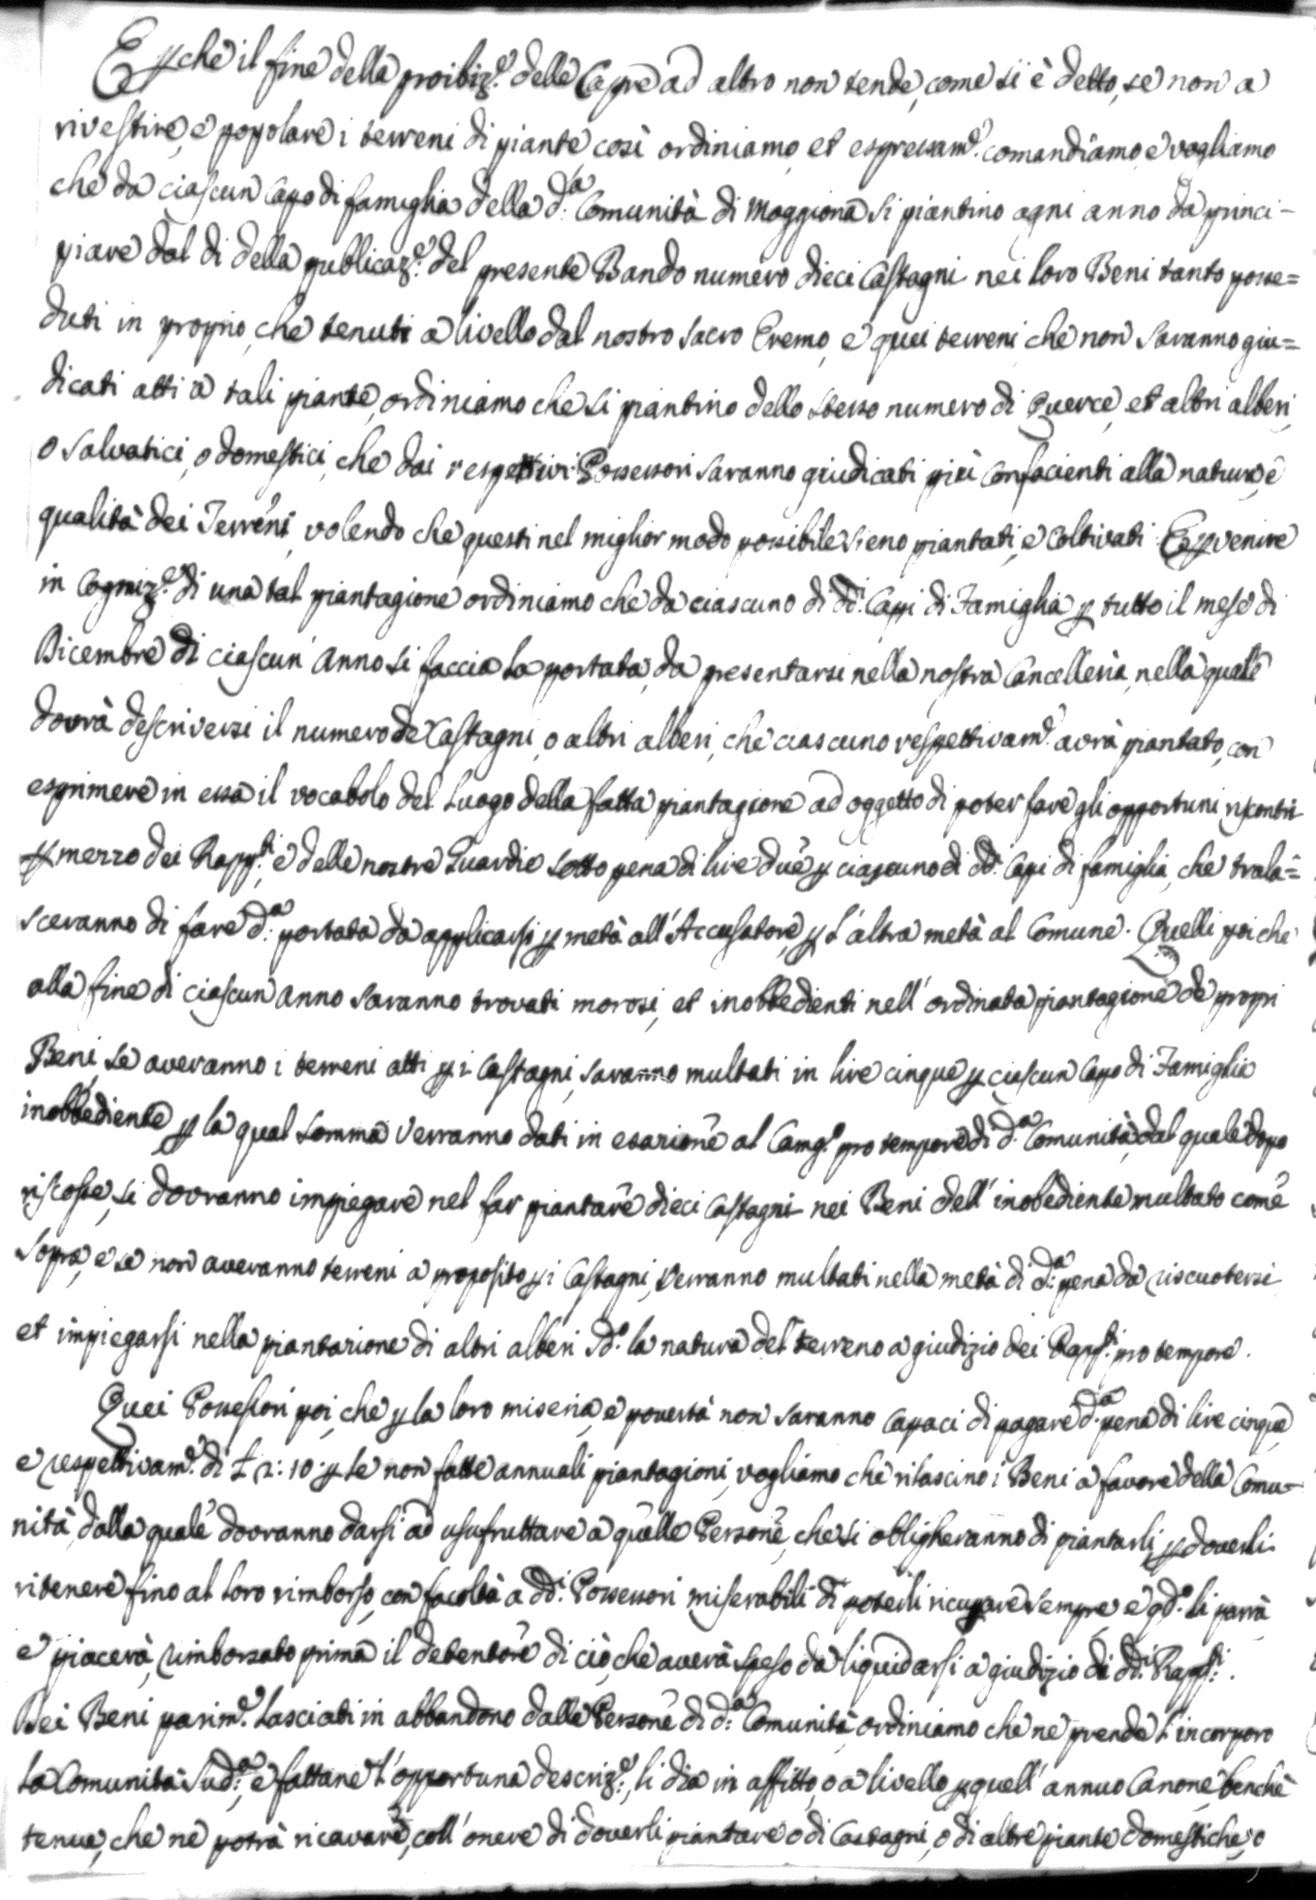 E p che il fine della proibiz.e delle Capre ad altro non tende, come si è detto, se non a
rivestire, e popolare i terreni di piante, così ordiniamo, et espressam.e comandiamo, e vogliamo
che da ciascun Capo di famiglia della d.a Comunità di Moggiona si piantino ogni anno da princi-
piare dal di della publicaz.e del presente Bando numero dieci Castagni nei loro Beni tanto posse=
duti in proprio, che tenuti a livello dal nostro Sacro Eremo, e quei terreni che non saranno giu=
dicati atti a tali piante, ordiniamo che si piantino dello stesso numero di Querce, et altri alberi,
o salvatici, o domestici, che dai respettivi Possessori saranno giudicati più confacienti alla natura, e
qualità dei Terreni, volendo che questi nel miglior modo possibile sieno piantati, e coltivati. E p venire
in Cogniz.e di una tal piantagione ordiniamo che da ciascuno di dd.i Capi di Famiglia p tutto il mese di
Dicembre di ciascun Anno si faccia la portata, da presentarsi nella nostra Cancelleria, nella quale
dovrà descriversi il numero de Castagni, o altri alberi, che ciascuno respettivam.e avrà piantato, con
esprimere in essa il vocabolo del Luogo della fatta piantagione ad oggetto di poter fare gli opportuni riscontri
p mezzo dei Rapp.ti, e delle nostre Guardie sotto pena di lire due p ciascuno di dd.i Capi di famiglia, che trala=
sceranno di fare d.a portata da applicarsi p metà all'Accusatore, p l'altra metà al Comune. Quelli poi che
alla fine di ciascun Anno saranno trovati morosi, et inobbedienti nell'ordinata piantagione de propri
Beni se averanno i terreni atti p i Castagni, saranno multati in lire cinque p ciascun Capo di Famiglia
inobbediente, p la qual somma verranno dati in esazione al Camg.o pro tempore di d.a Comunità, dal quale dopo
riscosse, si dovranno impiegare nel far piantare dieci Castagni nei Beni dell'inobediente multato come
sopra, e se non averanno terreni a proposito p i Castagni, verranno multati nella metà di d.a pena da riscuotersi
et impiegarsi nella piantazione di altri alberi sd.o la natura del terreno a giudizio dei Rapp.ti pro tempore.
Quei Possessori poi, che p la loro miseria, e povertà non saranno capaci di pagare d.a pena di lire cinque
e respettivam.e di £ 2: 10 p le non fatte annuali piantagioni, vogliamo che rilascino i Beni a favore della Comu-
nità, dalla quale dovranno darsi ad usufruttare a quelle Persone, che si obligheranno di piantarli, p doverli
ritenere fino al loro rimborso, con facoltà a dd.i Possessori miserabili di poterli ricuperare sempre e qd.o li parrà
e piacerà, rimborsato prima il detentore di ciò, che averà speso da liquidarsi a giudizio di dd.i Rapp.ti.
Dei Beni parim.e lasciati in abbandono dalle Persone di d.a Comunità, ordiniamo che ne prenda l'incorporo
la Comunità sud.a, e fattane l'opportuna descriz.e, li dia in affitto, o a livello p quell'annuo Canone, benchè
tenue, che ne potrà ricavare, coll'onere di doverli piantare o di Castagni, o di altre piante domestiche, o